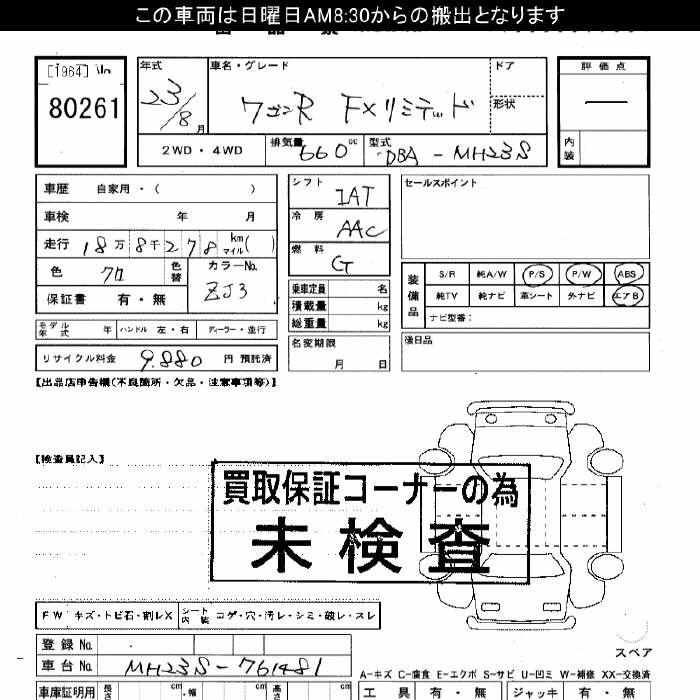 この車両は日曜日AM8:30からの搬出となります
[1964]
80261
年式
23/8月
車名・グレード
ワゴンR FXリミテッド
ドア
形状
評価点
—
内装
2WD・4WD
排気量
660cc
型式
DBA-MH23S
車歴 自家用・( )
車検 年 月
走行 18万8千278 km マイル( )
色 クロ 色替
カラーNo. ZJ3
保証書 有・無
モデル年式 年 ハンドル 左・右 ディーラー・並行
リサイクル料金 9.880 円 預託済
シフト IAT
冷房 AAC
燃料 G
乗車定員 名
積載量 kg
総重量 kg
名変期限 月 日
セールスポイント
装備品
S/R 純A/W P/S P/W ABS
純TV 純ナビ 革シート 外ナビ エアB
ナビ型番:
後日品
【出品店申告欄(不良箇所・欠品・注意事項等)】
【検査員記入】
買取保証コーナーの為
未検査
FW キズ・トビ石・割レX
シート内装 コゲ・穴・汚レ・シミ・破レ・スレ
登録No.
車台No. MH23S-761481
スペア
A-キズ C-腐食 E-エクボ S-サビ U-凹ミ W-補修 XX-交換済
車庫証明用 長さ cm 幅 cm 高さ cm
工具 有・無 ジャッキ 有・無